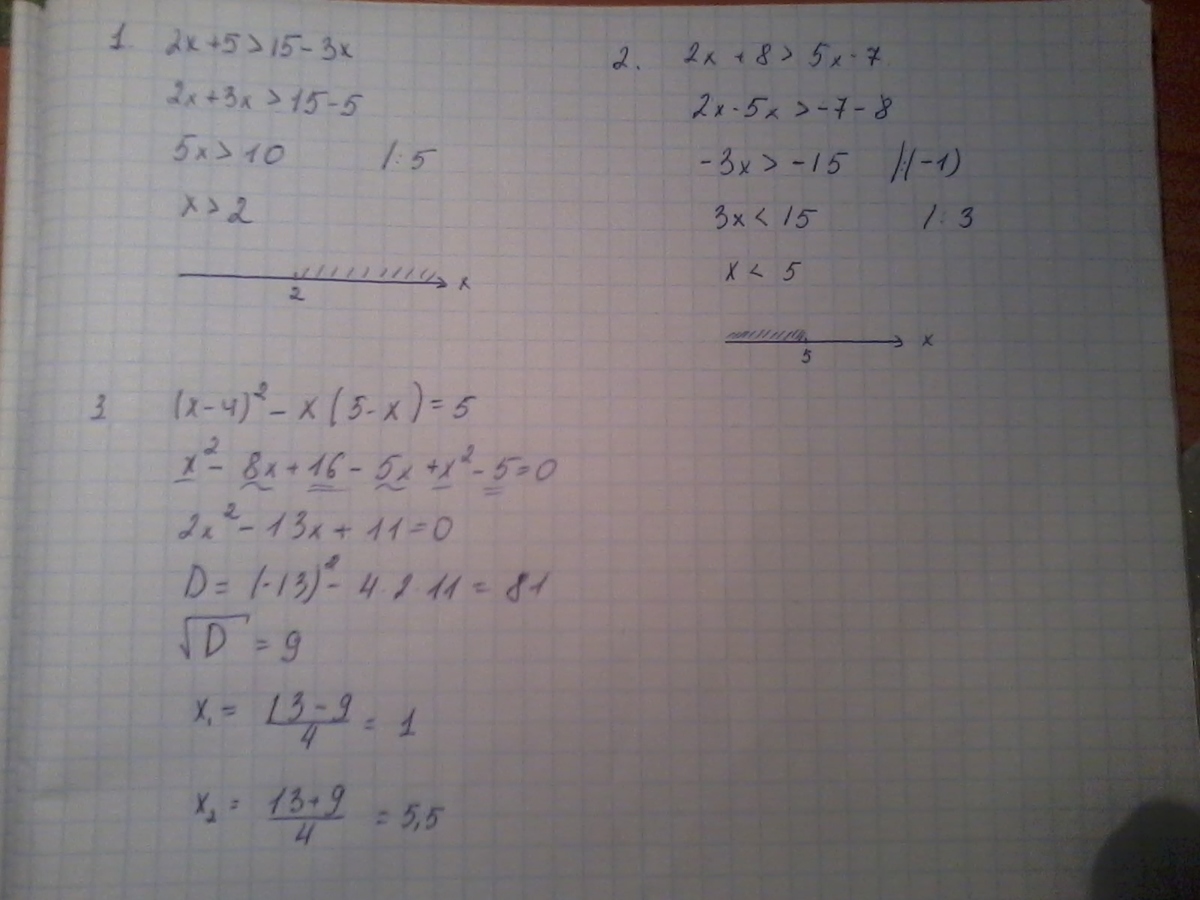 1. 2x+5>15-3x
2x+3x>15-5
5x>10 /:5
x>2
2 x
2. 2x+8>5x-7
2x-5x>-7-8
-3x>-15 /:(-1)
3x<15 /:3
x<5
5 x
3 (x-4)²-x(5-x)=5
x²-8x+16-5x+x²-5=0
2x²-13x+11=0
D=(-13)²-4·2·11=81
√D=9
x₁=(13-9)/4=1
x₂=(13+9)/4=5,5